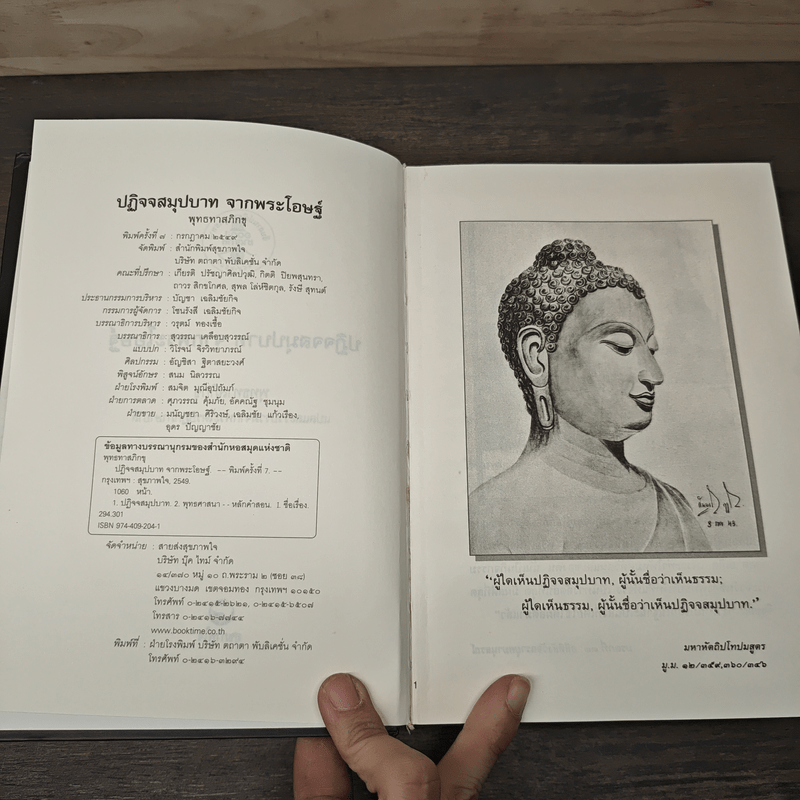 ปฏิจจสมุปบาท จากพระโอษฐ์
พุทธทาสภิกขุ
พิมพ์ครั้งที่ ๗ : กรกฎาคม ๒๕๔๙
จัดพิมพ์ : สำนักพิมพ์สุขภาพใจ
บริษัท ตถาตา พับลิเคชั่น จำกัด
คณะที่ปรึกษา : เกียรติ ปรัชญาศิลปวุฒิ, กิตติ ปิยพสุนทรา,
ถาวร สิกขโกศล, สุพล โล่ห์ชิตกุล, รังษี สุทนต์
ประธานกรรมการบริหาร : บัญชา เฉลิมชัยกิจ
กรรมการผู้จัดการ : โชนรังสี เฉลิมชัยกิจ
บรรณาธิการบริหาร : วรุตม์ ทองเชื้อ
บรรณาธิการ : สุวรรณ เคลือบสุวรรณ์
แบบปก : วิโรจน์ จิรวิทยาภรณ์
ศิลปกรรม : อัญชิสา ฐิตาสยะวงศ์
พิสูจน์อักษร : สนม นิลวรรณ
ฝ่ายโรงพิมพ์ : สมจิต มุณีอุปถัมภ์
ฝ่ายการตลาด : ศุภวรรณ คุ้มภัย, อัคคณัฐ ชุมนุม
ฝ่ายขาย : มนัญชยา ศิริวงษ์, เฉลิมชัย แก้วเรือง,
อุดร ปัญญาชัย
ข้อมูลทางบรรณานุกรมของสำนักหอสมุดแห่งชาติ
พุทธทาสภิกขุ
ปฏิจจสมุปบาท จากพระโอษฐ์ -- พิมพ์ครั้งที่ 7. --
กรุงเทพฯ : สุขภาพใจ, 2549.
1060 หน้า.
1. ปฏิจจสมุปบาท. 2. พุทธศาสนา - - หลักคำสอน. I. ชื่อเรื่อง.
294.301
ISBN 974-409-204-1
จัดจำหน่าย : สายส่งสุขภาพใจ
บริษัท บุ๊ค ไทม์ จำกัด
๑๔/๓๗๐ หมู่ ๑๐ ถ.พระราม ๒ (ซอย ๓๘)
แขวงบางมด เขตจอมทอง กรุงเทพฯ ๑๐๑๕๐
โทรศัพท์ ๐-๒๔๑๕-๒๖๒๑, ๐-๒๔๑๕-๖๕๐๗
โทรสาร ๐-๒๔๑๖-๗๗๔๔
www.booktime.co.th
พิมพ์ที่ : ฝ่ายโรงพิมพ์ บริษัท ตถาตา พับลิเคชั่น จำกัด
โทรศัพท์ ๐-๒๔๑๖-๓๒๙๔
“ผู้ใดเห็นปฏิจจสมุปบาท, ผู้นั้นชื่อว่าเห็นธรรม;
ผู้ใดเห็นธรรม, ผู้นั้นชื่อว่าเห็นปฏิจจสมุปบาท.”
มหาหัตถิปโทปมสูตร
มู.ม. ๑๒/๓๕๙,๓๖๐/๓๔๖
1